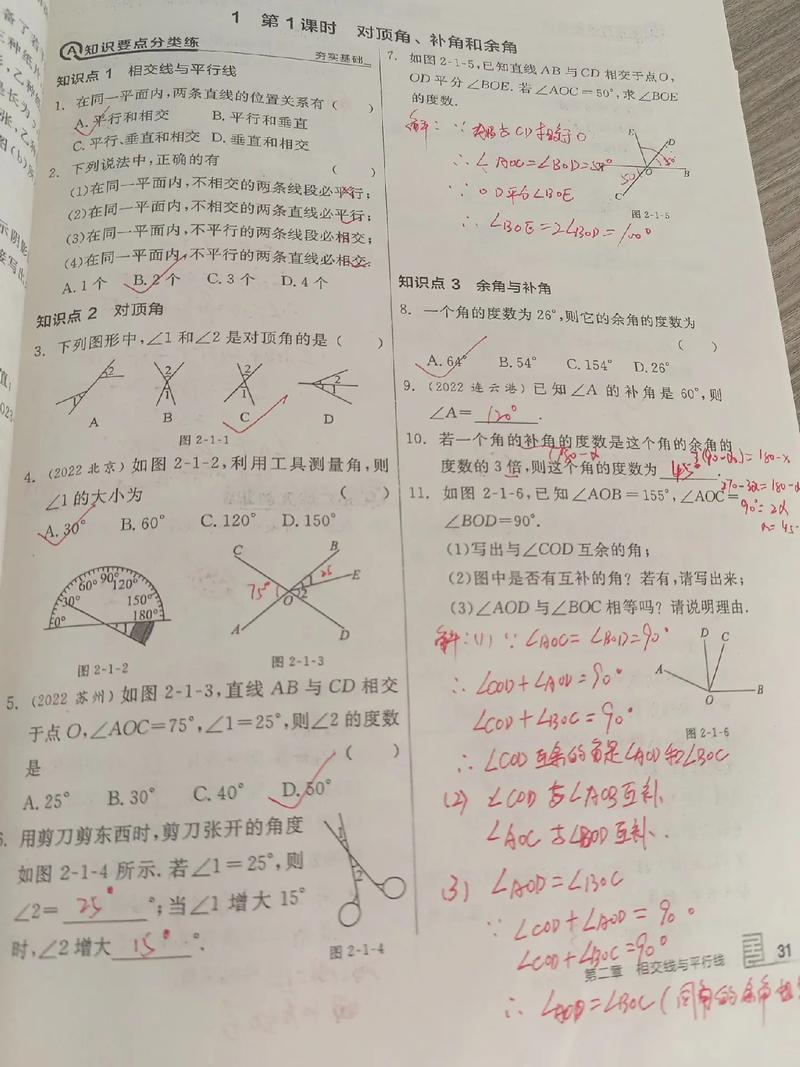 1 第1课时 对顶角、补角和余角
A 知识要点分类练 夯实基础
知识点1 相交线与平行线
1. 在同一平面内,两条直线的位置关系有( )
A.平行和相交 B.平行和垂直
C.平行、垂直和相交 D.垂直和相交
2. 下列说法中,正确的有 ( )
(1)在同一平面内,不相交的两条线段必平行;
(2)在同一平面内,不相交的两条直线必平行;
(3)在同一平面内,不平行的两条线段必相交;
(4)在同一平面内,不平行的两条直线必相交.
A.1个 B.2个 C.3个 D.4个
知识点2 对顶角
3. 下列图形中,∠1和∠2是对顶角的是( )
1 2
2 1
2 1
2 1
A B C D
图2-1-1
4. (2022北京)如图2-1-2,利用工具测量角,则
∠1的大小为 ( )
A.30° B.60° C.120° D.150°
0° 30° 60° 90° 120° 150° 180°
图2-1-2
C B E A D O 1 2
75° 25
图2-1-3
5. (2022苏州)如图2-1-3,直线AB与CD相交
于点O,∠AOC=75°,∠1=25°,则∠2的度数
是 ( )
A.25° B.30° C.40° D.50°
6. 用剪刀剪东西时,剪刀张开的角度
如图2-1-4所示.若∠1=25°,则
∠2= 25° °;当∠1增大15°
时,∠2增大 15° °.
1 2
图2-1-4
7. 如图2-1-5,已知直线AB与CD相交于点O,
OD平分∠BOE.若∠AOC=50°,求∠BOE
的度数.
解: ∵ CD O
∴ ∠AOC=∠BOD=50°
∵ OD平分∠BOE
∴ ∠BOE=2∠BOD=100°
E D B O C
50° 50
图2-1-5
知识点3 余角与补角
8. 一个角的度数为26°,则它的余角的度数为
( )
A.64° B.54° C.154° D.26°
9. (2022连云港)已知∠A的补角是60°,则
∠A= 120° .
10. 若一个角的补角的度数是这个角的余角的
度数的3倍,则这个角的度数为 45° .
180-α 3(90-α)=180-α
270-3α=180-α
90°=2α
α=45
11. 如图2-1-6,已知∠AOB=155°,∠AOC=
∠BOD=90°.
(1)写出与∠COD互余的角;
(2)图中是否有互补的角?若有,请写出来;
(3)∠AOD与∠BOC相等吗?请说明理由.
解:(1) ∵ ∠AOC=∠BOD=90°
∴ ∠COD+∠AOD=90°
∠COD+∠BOC=90°
∴ ∠COD互余的角是∠AOD和∠BOC
D C A O B
图2-1-6
(2) ∠COD与∠AOB互补.
∠AOC与∠BOD互补.
(3) ∠AOD=∠BOC
∵ ∠COD+∠AOD=90°
∠COD+∠BOC=90°
∴ ∠AOD=∠BOC(同角的余角相
第二章 相交线与平行线 31